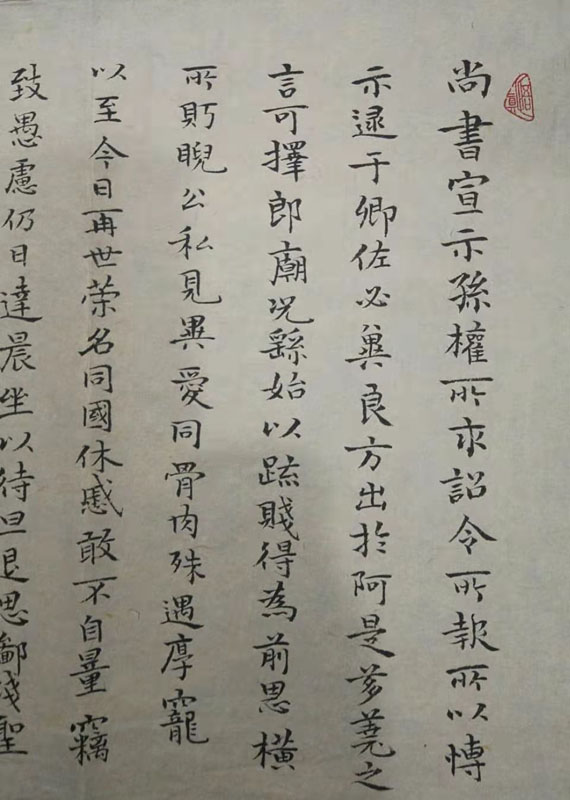 尚書宣示孫權所求詔令所報所以博
示逮于卿佐必冀良方出於阿是芻蕘之
言可擇郎廟況繇始以疏賤得為前恩橫
所盻睨公私見異愛同骨肉殊遇厚寵
以至今日再世榮名同國休慼敢不自量竊
致愚慮仍日達晨坐以待旦退思鄙淺聖